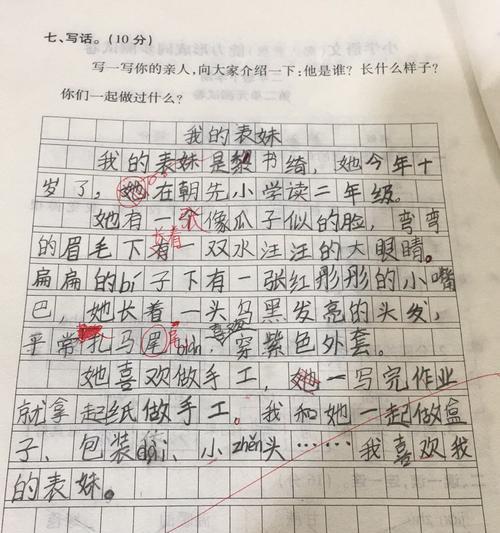 七、写话。(10分)
写一写你的亲人,向大家介绍一下:他是谁?长什么样子?
你们一起做过什么?
我的表妹
我的表妹是黎书绮,她今年十
岁了,她在朝先小学读二年级。
她有一张像瓜子似的脸,弯弯
的眉毛下长着一双水汪汪的大眼睛。
扁扁的bí子下有一张红彤彤的小嘴
巴,她长着一头乌黑发亮的头发,
平常扎马尾biàn,喜欢穿紫色外套。
她喜欢做手工,她一写完作业
就拿起纸做手工。我和她一起做盒
子、包装dài、小zhěn头……我喜欢我
的表妹。